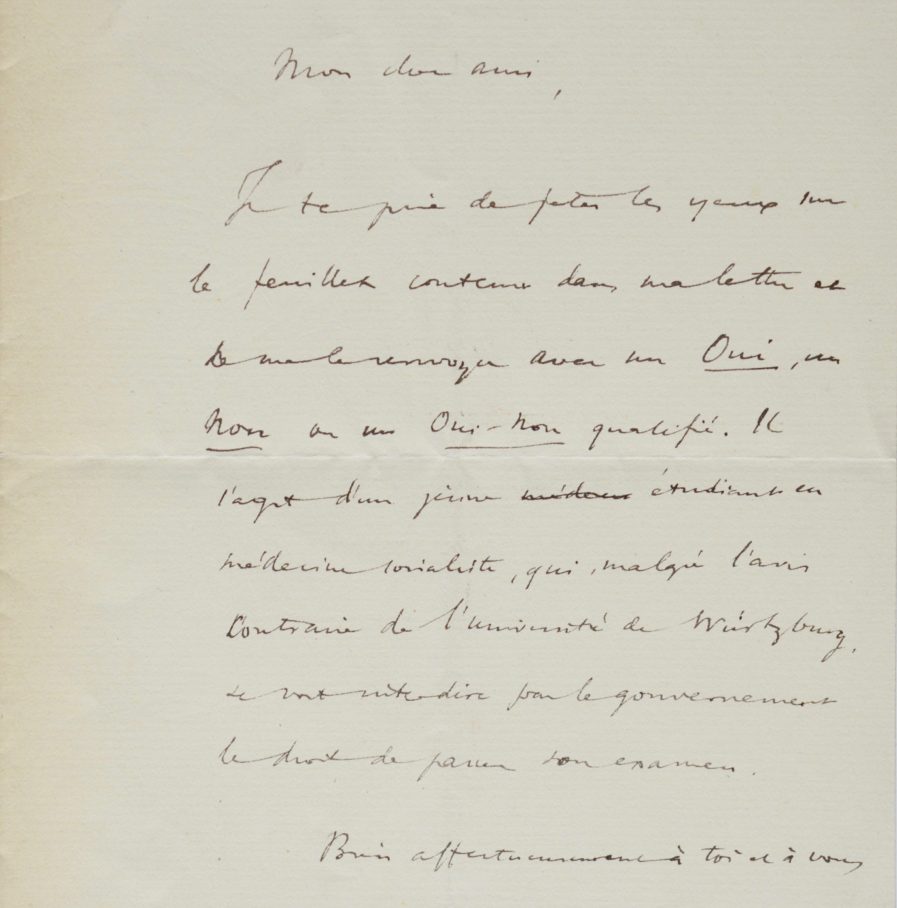 Mon cher ami,
Je te prie de jeter les yeux sur
le feuillet contenu dans ma lettre et
de me le renvoyer avec un Oui, un
Non ou un Oui-Non qualifié. Il
s'agit d'un jeune médecin étudiant en
médecine socialiste, qui, malgré l'avis
contraire de l'université de Würtzburg,
se voit interdire par le gouvernement
le droit de passer son examen.
Bien affectueusement à toi et à vous